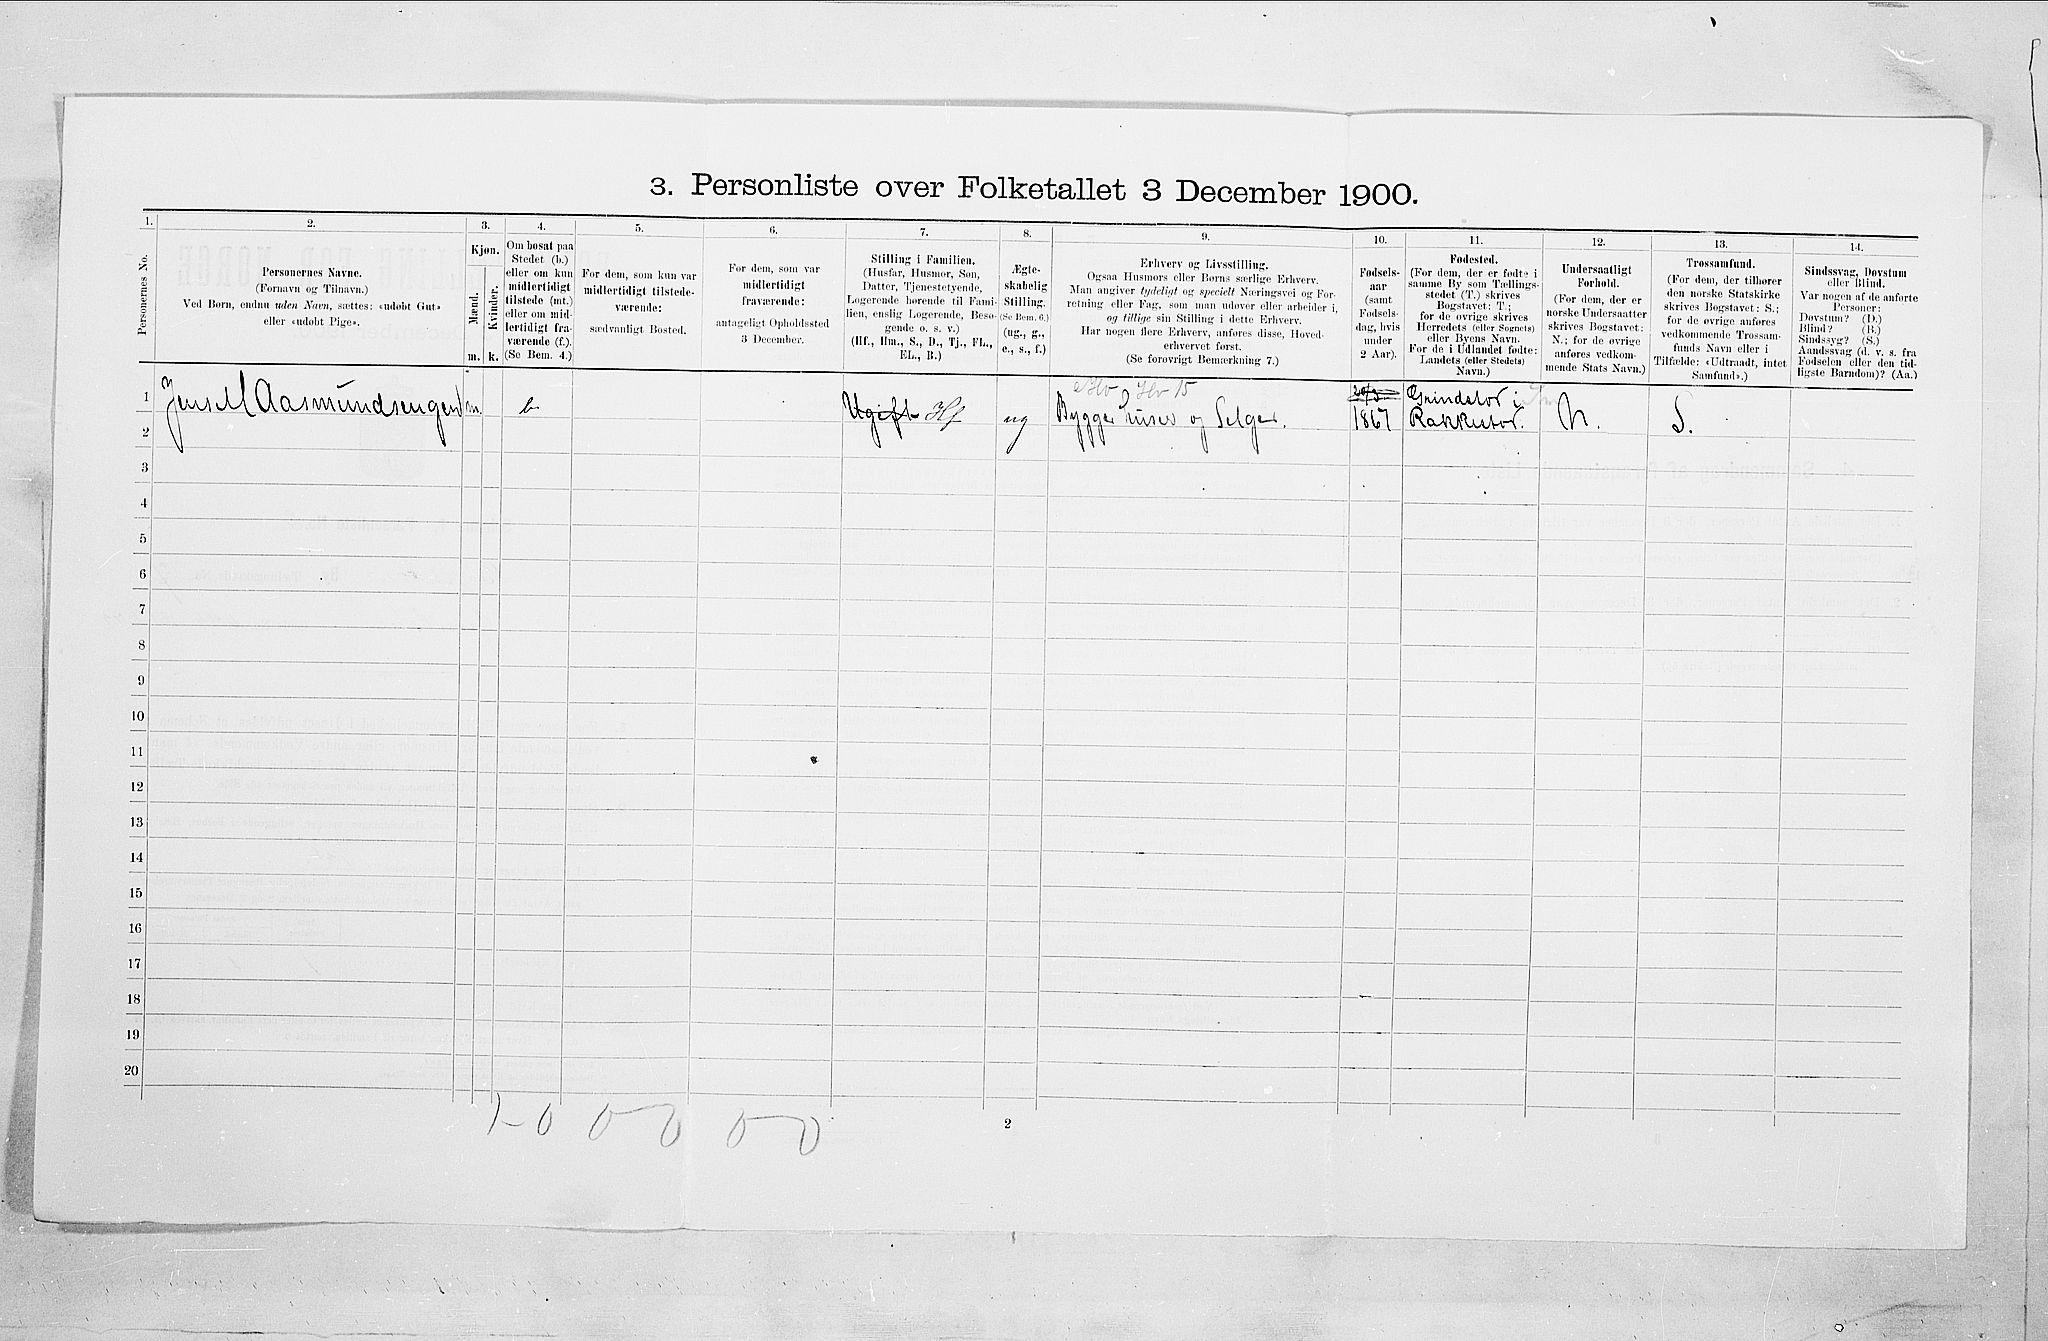 3. Personliste over Folketallet 3 December 1900.
1.
2.
3.
4.
5.
6.
7.
8.
9.
10.
11.
12.
13.
14.
Personernes No.
Personernes Navne.
(Fornavn og Tilnavn.)
Ved Børn, endnu uden Navn, sættes: «udøbt Gut»
eller «udøbt Pige».
Kjøn.
Mænd.
Kvinder.
m.
k.
Om bosat paa
Stedet (b.)
eller om kun
midlertidigt
tilstede (mt.)
eller om mid-
lertidigt fra-
værende (f.).
(Se Bem. 4.)
For dem, som kun var
midlertidigt tilstede-
værende:
sædvanligt Bosted.
For dem, som var
midlertidigt
fraværende:
antageligt Opholdssted
3 December.
Stilling i Familien.
(Husfar, Husmor, Søn,
Datter, Tjenestetyende,
Logerende hørende til Fami-
lien, enslig Logerende, Besø-
gende o. s. v.)
(Hf., Hm., S., D., Tj., FL.,
EL., B.)
Ægte-
skabelig
Stilling.
(Se Bem. 6.)
(ug., g.,
e., s., f.)
Erhverv og Livsstilling.
Ogsaa Husmors eller Børns særlige Erhverv.
Man angiver tydeligt og specielt Næringsvei og For-
retning eller Fag, som man udøver eller arbeider i,
og tillige sin Stilling i dette Erhverv.
Har nogen flere Erhverv, anføres disse, Hoved-
erhvervet først.
(Se forøvrigt Bemærkning 7.)
Fødsels-
aar
(samt
Fødsels-
dag, hvis
under
2 Aar).
Fødested.
(For dem, der er fødte i
samme By som Tællings-
stedet (T.) skrives
Bogstavet: T.;
for de øvrige skrives
Herredets (eller Sognets)
eller Byens Navn.
For de i Udlandet fødte:
Landets (eller Stedets)
Navn.)
Undersaatligt
Forhold.
(For dem, der er
norske Undersaatter
skrives Bogstavet:
N.; for de øvrige
anføres vedkom-
mende Stats Navn.)
Trossamfund.
(For dem, der tilhører
den norske Statskirke
skrives Bogstavet: S.;
for de øvrige anføres
vedkommende Trossam-
funds Navn eller i
Tilfælde: «Udtraadt, intet
Samfund».)
Sindssvag, Døvstum
eller Blind.
Var nogen af de anførte
Personer:
Døvstum? (D.)
Blind? (B.)
Sindssyg? (S.)
Aandssvag (d. v. s. fra
Fødselen eller den tid-
ligste Barndom)? (Aa.)
1 Jens M Aasmundsengen m. b Ugift Hf ug Bygger huser og Selger. 1867 Grindstor i Rakkestor. N. S.
2
3
4
5
6
7
8
9
10
11
12
13
14
15
16
17
18
19
20
1-0 0-0 0-0
2